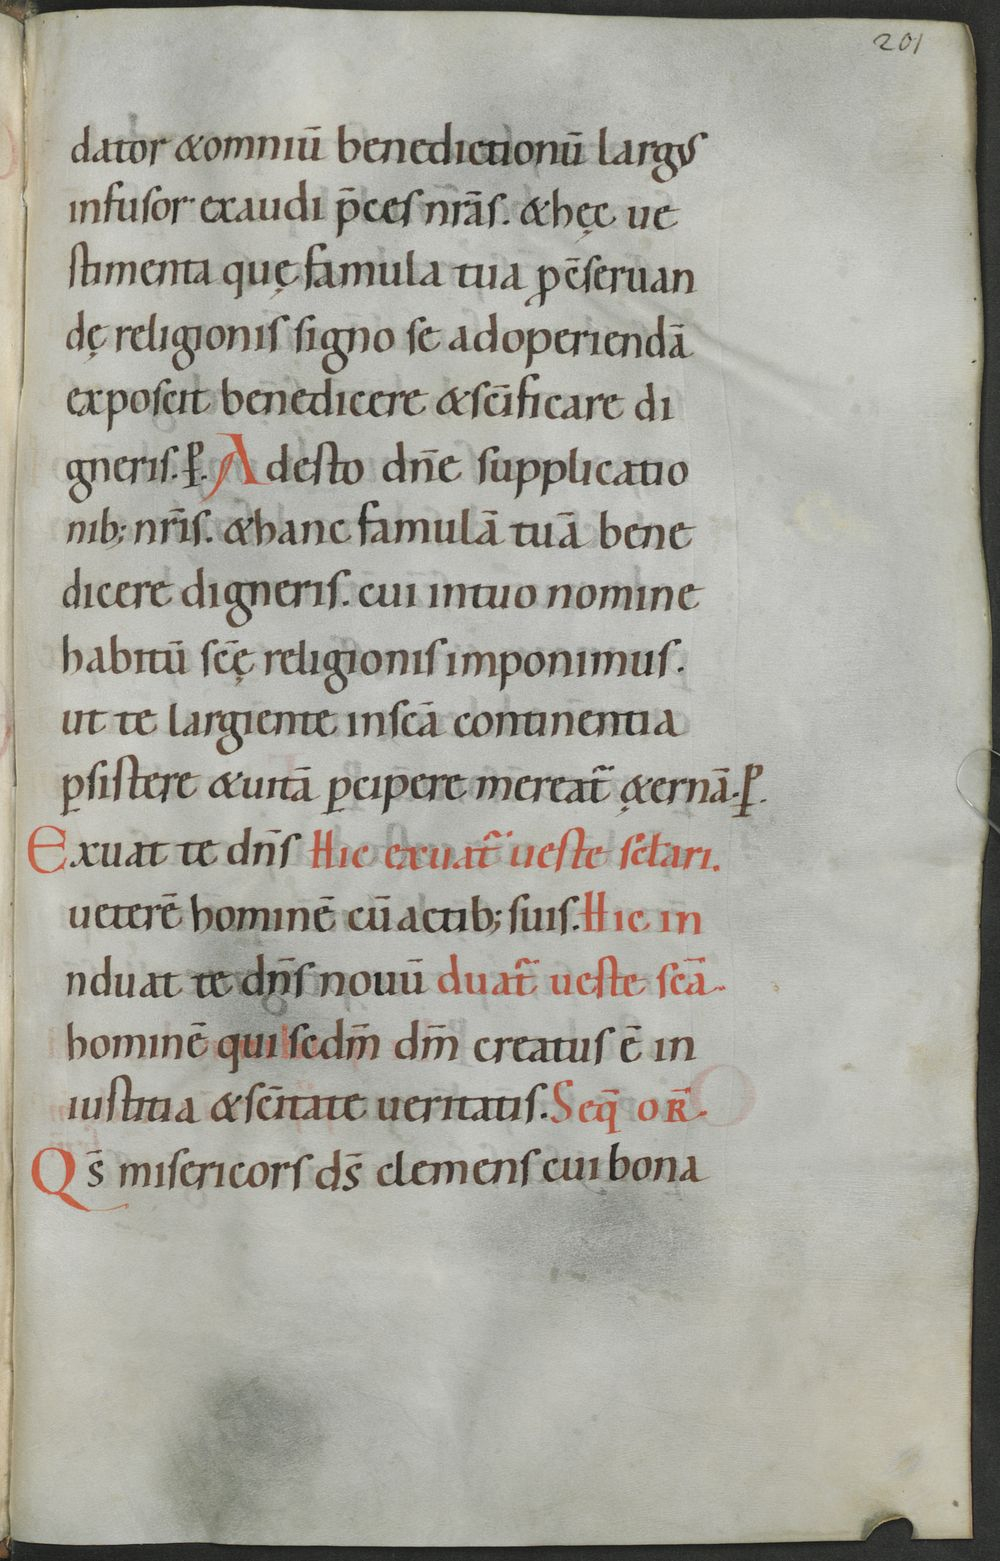 201
dator &omniū benedictionū largus
infusor· exaudi p̄ces nr̄as. &hęc ue
stimenta quę famula tua p̱ c̄seruan
dę religionis signo se adoperiendā
exposcit benedicere &sc̄ificare di
gneris. ꝑ. Adesto dn̄e supplicatio
nib; nr̄is. &hanc famulā tuā bene
dicere digneris. cui intuo nomine
habitū sc̄ę religionis imponimus.
ut te largiente insc̄a continentia
ꝑsistere &uitā ꝑcipere mereat̄ ę&ernā. ꝑ.
Exuat te dn̄s Hic exuat̄ ueste sc̄lari.
ueterē hominē cū actib; suis. Hic in
nduat te dn̄s nouū duat̄ ueste sc̄a.
hominē qui scdm̄ dm̄ creatus ē in
iustitia &sc̄itate ueritatis. Seq̄ or̄.
Qs̄ misericors ds̄ clemens cui bona